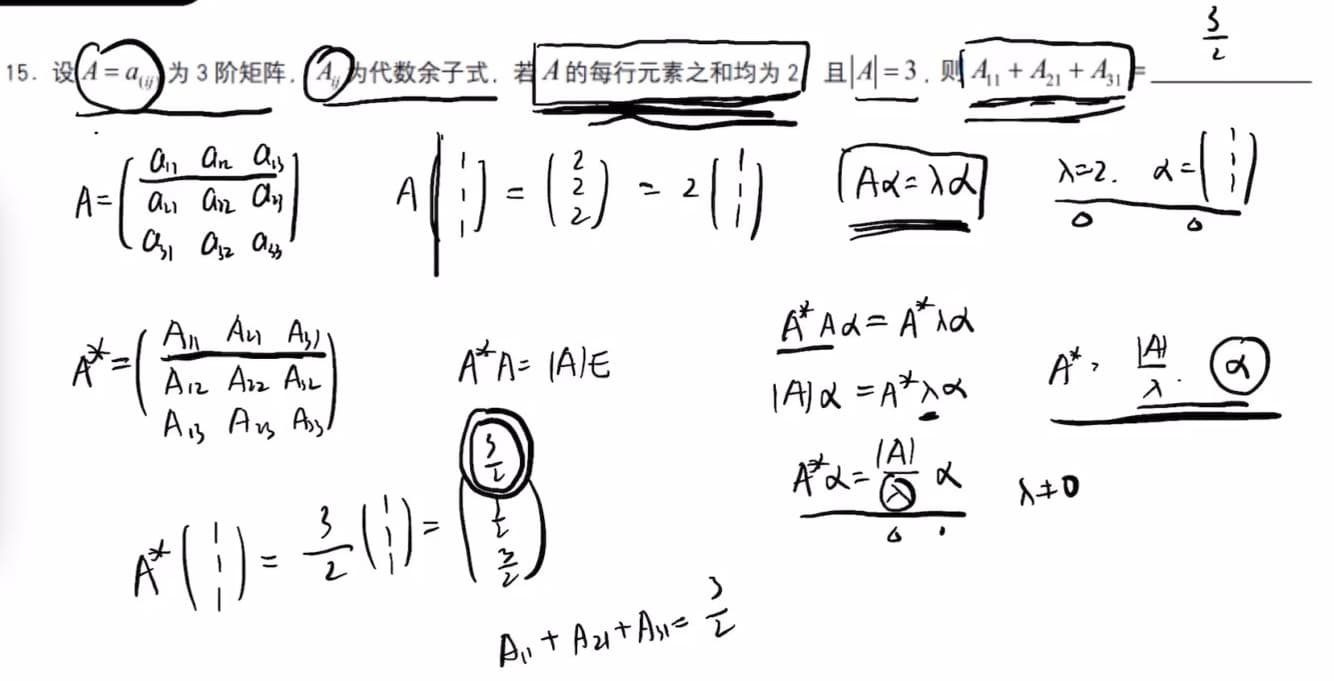 3/2
15. 设 A = a_(ij) 为 3 阶矩阵, A_ij 为代数余子式, 若 A 的每行元素之和均为 2, 且|A| = 3, 则 A₁₁ + A₂₁ + A₃₁ = ________
A = (a₁₁ a₁₂ a₁₃
a₂₁ a₂₂ a₂₃
a₃₁ a₃₂ a₃₃)
A (1 1 1) = (2 2 2) = 2 (1 1 1)
Aα = λα
λ=2. α = (1 1 1)
A* = (A₁₁ A₂₁ A₃₁
A₁₂ A₂₂ A₃₂
A₁₃ A₂₃ A₃₃)
A*A = |A|E
A*Aα = A*λα
|A|α = A*λα
A*α = |A|/λ α
A*, |A|/λ. α
λ≠0
A* (1 1 1) = 3/2 (1 1 1) = (3/2 3/2)
A₁₁ + A₂₁ + A₃₁ = 3/2